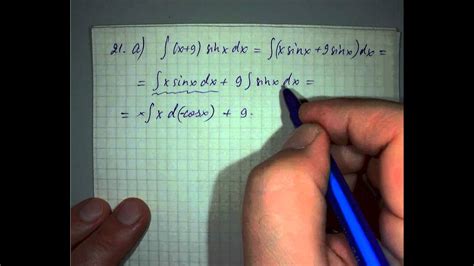 21. a) ∫(x+9) sinx dx = ∫(x sinx + 9 sinx) dx =
= ∫x sinx dx + 9 ∫sinx dx =
= x∫x d(-cosx) + 9.